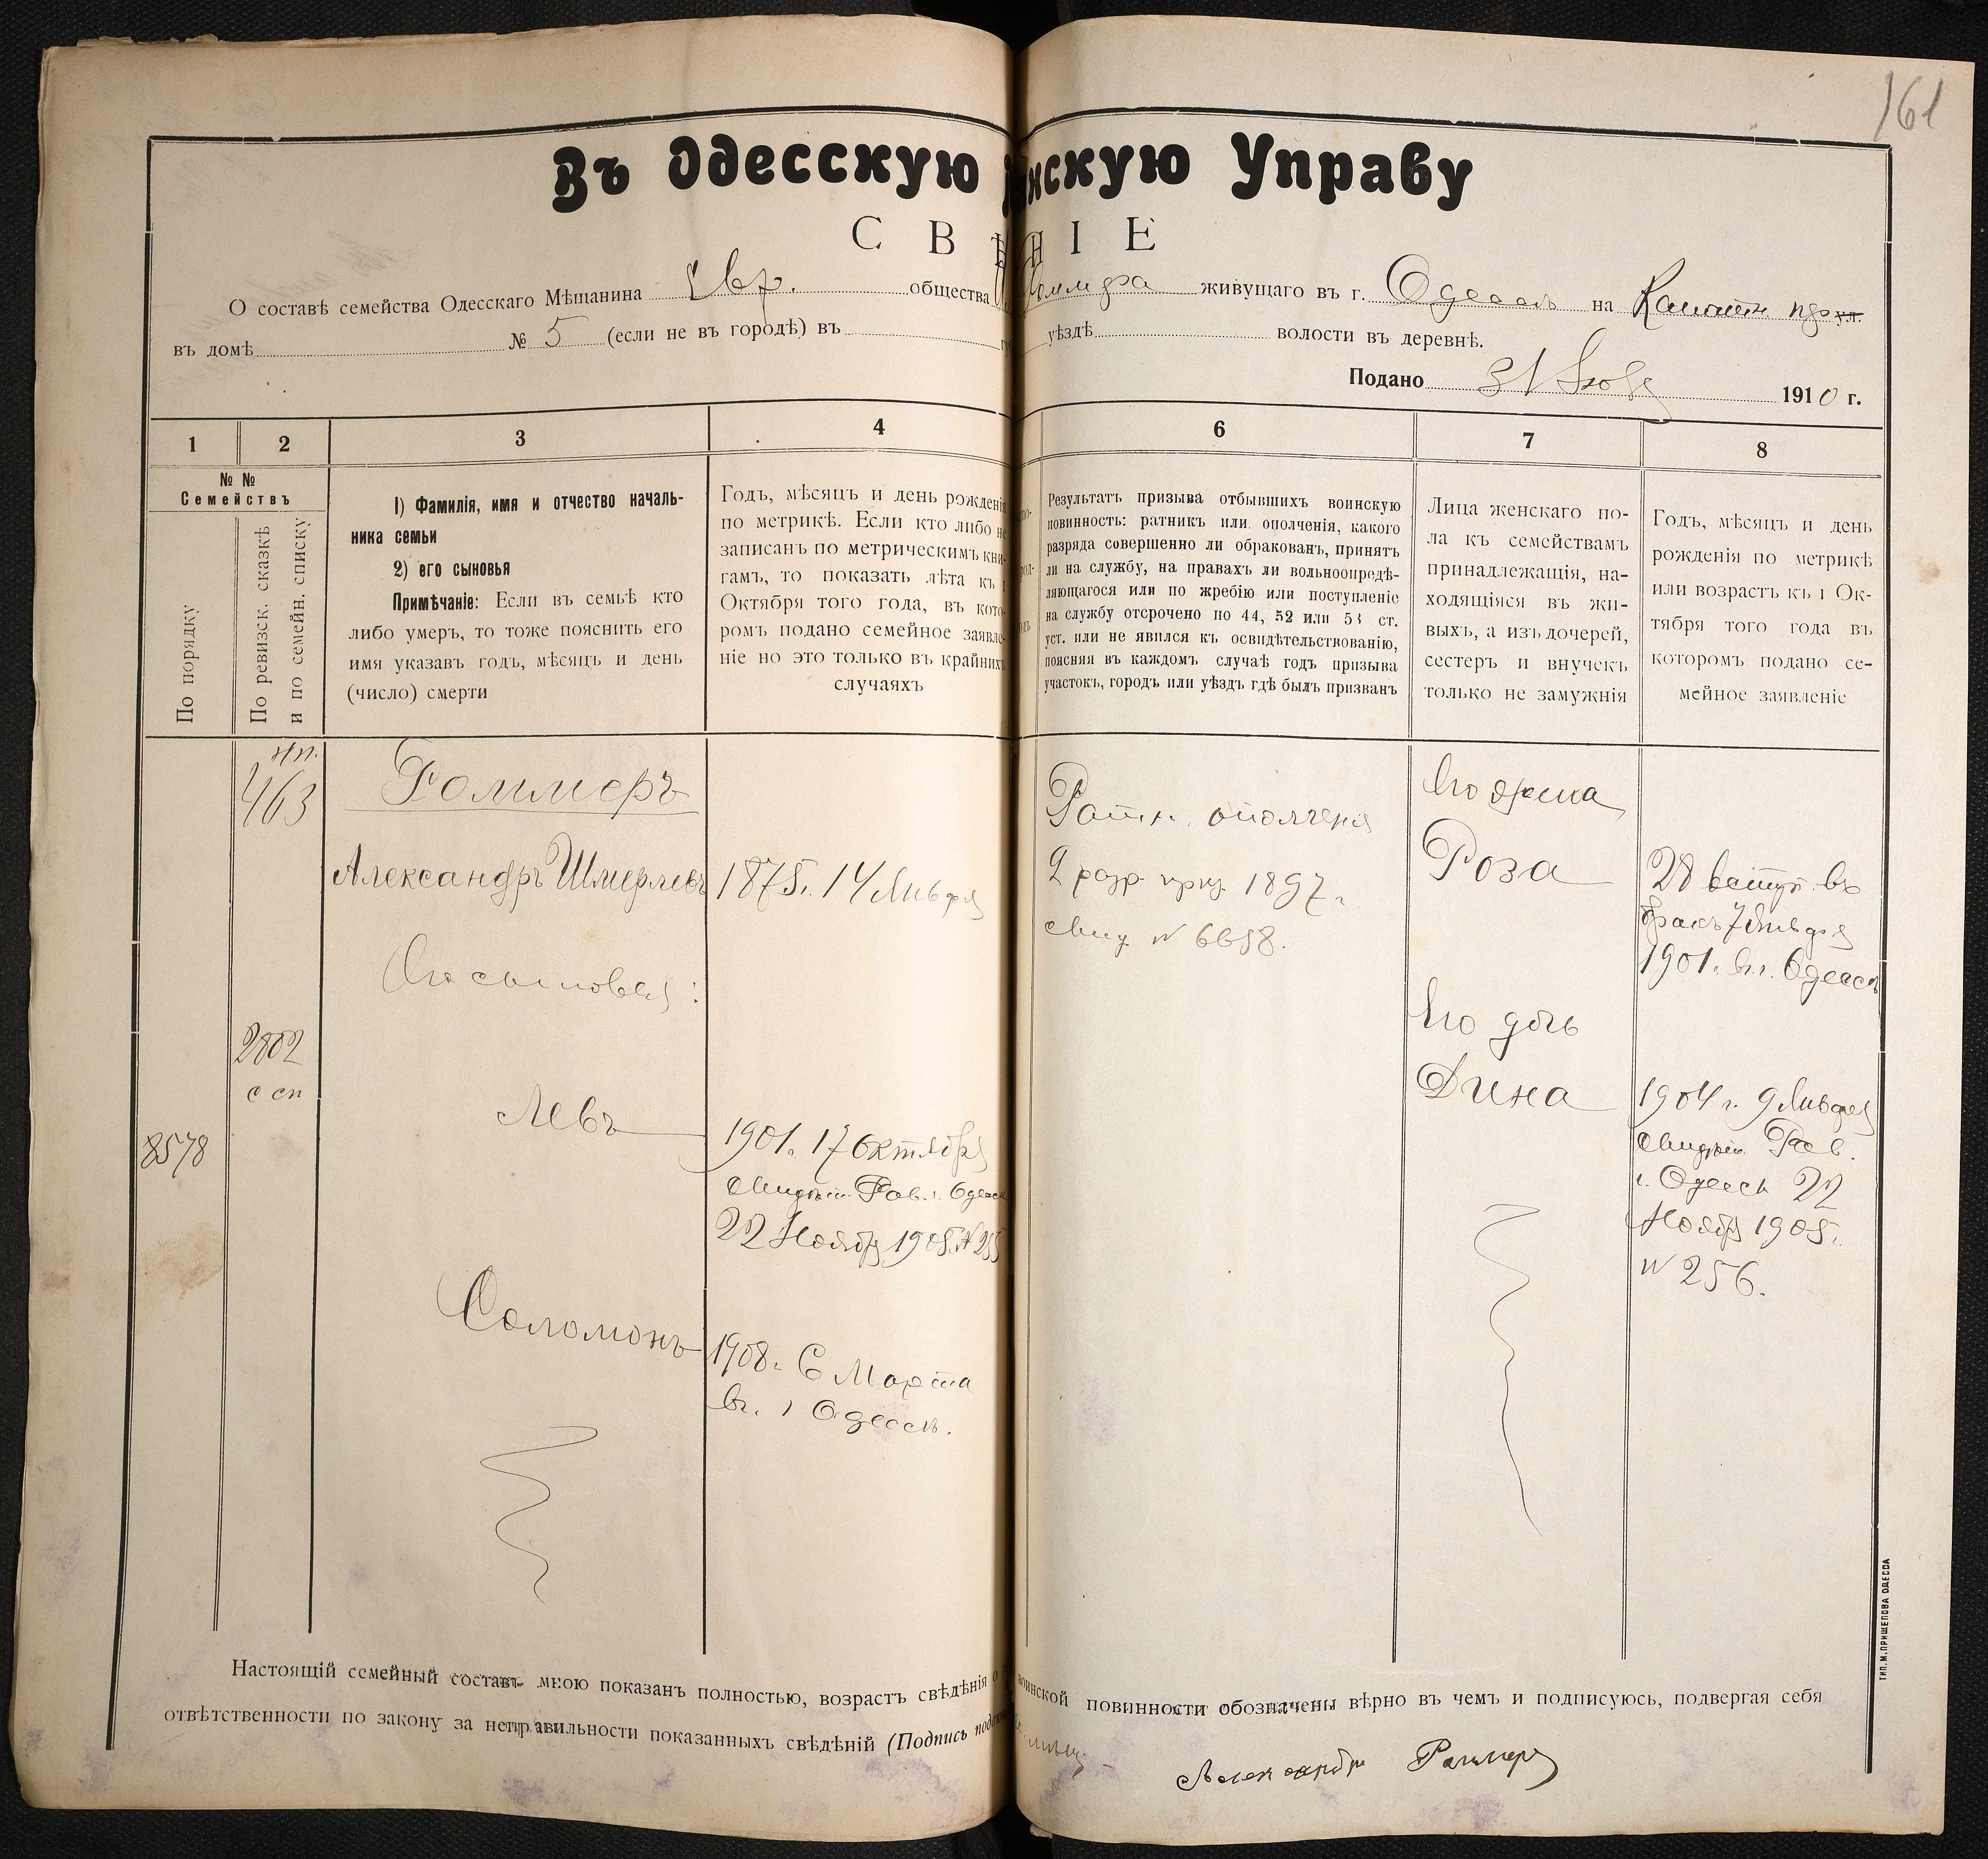 161
Въ Одесскую нскую Управу
СВѢ НІЕ
О составѣ семейства Одесскаго Мѣщанина Евр. общества живущаго въ г. Одессѣ на Канатн. ул.
въ домѣ № 5 (если не въ городѣ) въ уѣздѣ волости въ деревнѣ.
Подано 31 1910 г.
1 2 3 4 6 7 8
№ №
Семействъ
По порядку
По ревизск. сказкѣ
и по семейн. списку
1) Фамилія, имя и отчество началь-
ника семьи
2) его сыновья
Примѣчаніе: Если въ семьѣ кто
либо умеръ, то тоже пояснить его
имя указавъ годъ, мѣсяцъ и день
(число) смерти
Годъ, мѣсяцъ и день рожденія
по метрикѣ. Если кто либо не
записанъ по метрическимъ кни-
гамъ, то показать лѣта къ 1
Октября того года, въ кото-
ромъ подано семейное заявле-
ніе но это только въ крайнихъ
случаяхъ
Результатъ призыва отбывшихъ воинскую
повинность: ратникъ или ополченія, какого
разряда совершенно ли обракованъ, принятъ
ли на службу, на правахъ ли вольноопредѣ-
ляющагося или по жребію или поступленіе
на службу отсрочено по 44, 52 или 53 ст.
уст. или не явился къ освидѣтельствованію,
поясняя въ каждомъ случаѣ годъ призыва
участокъ, городъ или уѣздъ гдѣ былъ призванъ
Лица женскаго по-
ла къ семействамъ
принадлежащія, на-
ходящіяся въ жи-
выхъ, а изъ дочерей,
сестеръ и внучекъ
только не замужнія
Годъ, мѣсяцъ и день
рожденія по метрикѣ
или возрастъ къ 1 Ок-
тября того года въ
которомъ подано се-
мейное заявленіе
нп.
463
2802
с сп
8578
Роммеръ
Александръ Шмерлевъ
Его сыновья:
Левъ
Соломонъ
1875г. 14 Января
1901г. 17 Октября
Свидѣт. Рав. г. Одессы
22 Ноября 1905г. № 255
1908г. 6 Марта
въ г. Одессѣ.
Ратн. ополченія
2 разр. приз. 1897г.
свид. № 6658.
Его жена
Роза
Его дочь
Дина
28 вступ. въ
бракъ 7 Января
1901г. въ г. Одессѣ
1904 г. 9 Января
свидѣт. Рав.
г. Одессы 22
Ноября 1905г.
№ 256.
Настоящій семейный составъ мною показанъ полностью, возрастъ свѣдѣнія о воинской повинности обозначены вѣрно въ чемъ и подписуюсь, подвергая себя
отвѣтственности по закону за неправильности показанныхъ свѣдѣній (Подпись
Александръ Роммеръ
ТИП. М. ПРИЩЕПОВА ОДЕССА